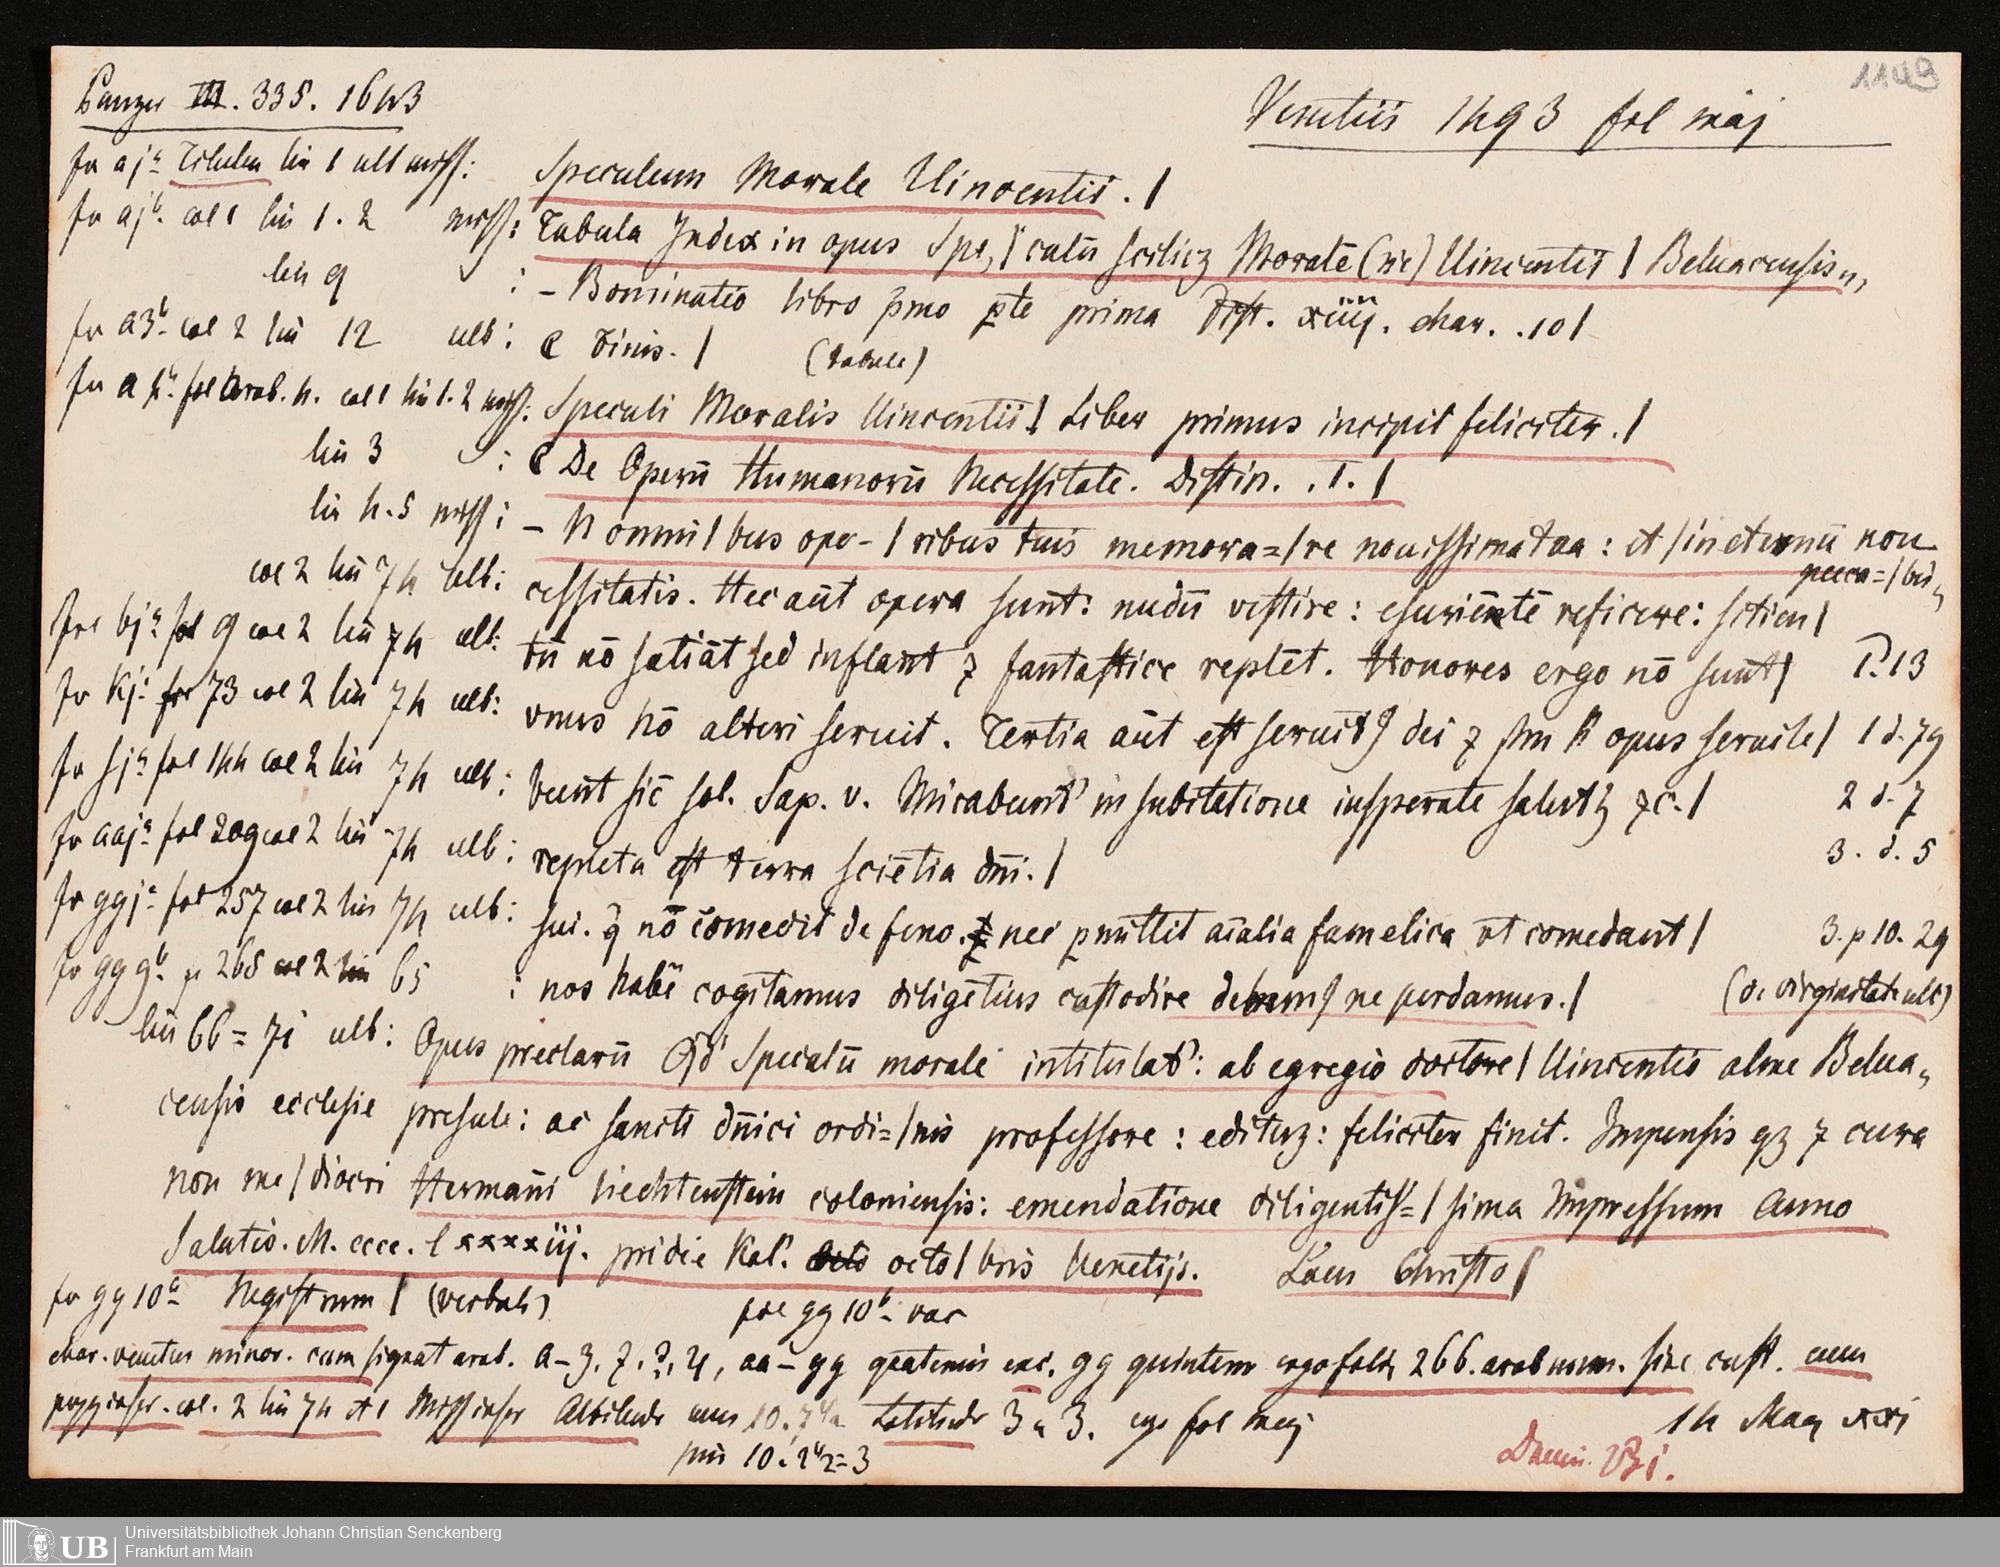 1149
Panzer III. 335. 1643
Venetiis 1493 fol maj
fo aja Titulus lin 1 alb miss: Speculum Morale Uincentii. |
fo ajb col 1 lin 1. 2 miss: Tabula Index in opus Spe, | culū scilicz Moralē (sic) Uincentii | Beluacensis,,
lin 9 : - Bominatio libro pmo pte prima dist. xiiij. char. .10 |
fo a3b col 2 lin 12 alb: C Finis. | (tabule)
fo a 4b fol arab. 4. col 1 lin 1. 2 miss: Speculi Moralis Uincentii | Liber primus incipit feliciter. |
lin 3 : C De Operū Humanorū Necessitate. Distin. .I. |
lin 4. 5 miss: - N omni | bus ope- | ribus tuis memora= | re nouissima tua: et | in eternū non
pecca= | bis,,
col 2 lin 74 alb: cessitatis. Hec aūt opera sunt: nudū vestire: esuriēntē reficere: sitien |
fol bja fol 9 col 2 lin 74 alb: tū nō satiāt sed inflant ⁊ fantastice replēt. Honores ergo nō sunt | P. 13
fo kja fol 73 col 2 lin 74 alb: vnus nō alteri seruit. Tertia aūt est seruitꝰ dei ⁊ opus seruile | 1 d. 79
fo sja fol 144 col 2 lin 74 alb: bunt sic sol. Sap. v. Mirabunt in subitatione insperate salutꝭ ⁊c. | 2 d. 7
fo aaja fol 209 col 2 lin 74 alb: repleta est terra sciētia dn̄i. | 3. d. 5
fo ggja fol 257 col 2 lin 74 alb: sui. q̄ nō comedit de feno. nec pmittit aīalia famelica vt comedant | 3. p 10. 29
fo gg 9b p 265 col 2 lin 65 : nos habē cogitamus diligētius custodire debemꝰ ne perdamus. | (de virginitate ult)
lin 66 = 71 alb: Opus preclarū Qd' Speculū morale intitulat': ab egregio doctore | Uincentio alme Belua,,
censis ecclesie presule: ac sancti dn̄ici ordi= | nis professore: editur: feliciter finit. Impensis qꝫ ⁊ cura
non me | diocri Hermanī liechtenstein coloniensis: emendatione diligentiss= | sima Impressum Anno
Salutis. M. cccc. lxxxxiij. pridie Kal'. octo | bris Uenetijs. Laus Christo |
fo gg 10a Registrum | (verbale) fol gg 10b vac
char. venetus minor. cum signat arab. a-3. ⁊. ?. 4, aa-gg quaternis exc. gg quintern ergo foliis 266. arab num. sine cust. cum
pagg inscr. col. 2 lin 74 et 1 Miss inscr Altitudo cum 10. 7 Latitudo 3 3. ergo fol maj
14 Mag xxj
sin 10. 2 = 3